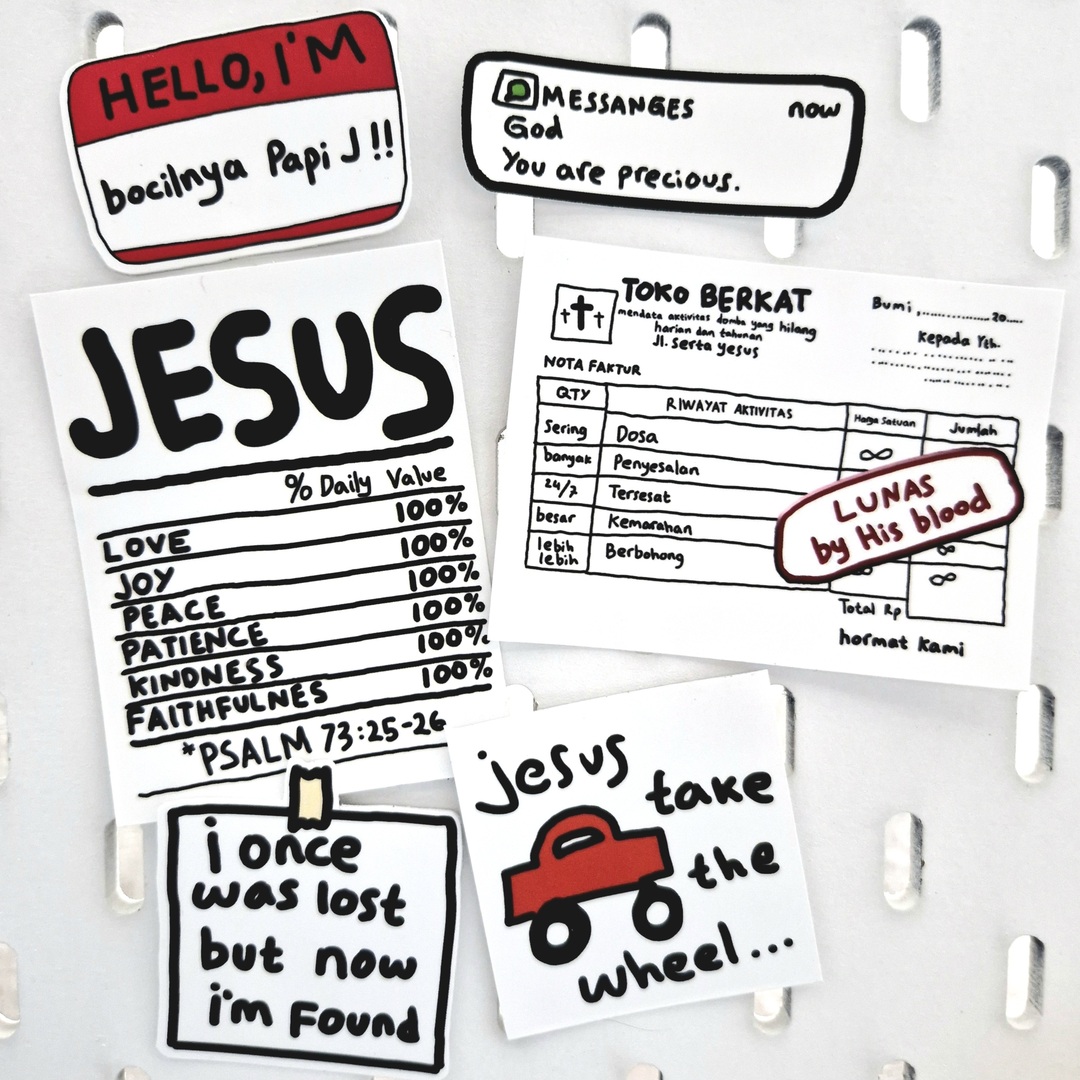 HELLO, I'M
bocilnya Papi J !!
MESSANGES now
God
You are precious.
JESUS
% Daily Value
100%
LOVE 100%
JOY 100%
PEACE 100%
PATIENCE 100%
KINDNESS 100%
FAITHFULNES
*PSALM 73:25-26
TOKO BERKAT
mendata aktivitas domba yang hilang
harian dan tahunan
Jl. Serta Yesus
Bumi,..................20.....
Kepada Yth.
NOTA FAKTUR
QTY RIWAYAT AKTIVITAS Harga Satuan Jumlah
Sering Dosa ∞
banyak Penyesalan
24/7 Tersesat
besar Kemarahan ∞
lebih lebih Berbohong ∞ ∞
LUNAS
by His blood
Total Rp
hormat kami
i once
was lost
but now
i'm found
jesus
take
the
wheel...